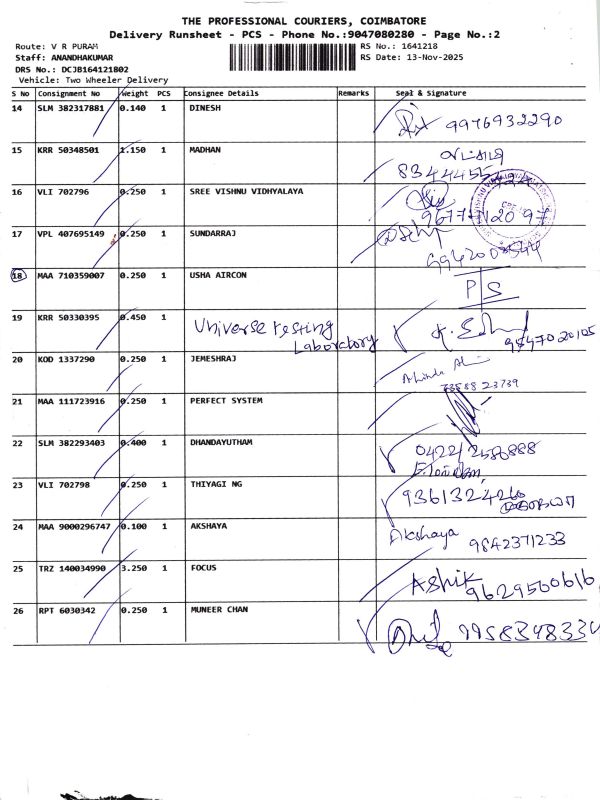 THE PROFESSIONAL COURIERS, COIMBATORE
Delivery Runsheet - PCS - Phone No.:9047080280 - Page No.:2
Route: V R PURAM
RS No.: 1641218
Staff: ANANDHAKUMAR
RS Date: 13-Nov-2025
DRS No.: DCJB164121802
Vehicle: Two Wheeler Delivery
S No Consignment No Weight PCS Consignee Details Remarks Seal & Signature
14 SLM 382317881 0.140 1 DINESH
9976932290
15 KRR 50348501 1.150 1 MADHAN
16 VLI 702796 0.250 1 SREE VISHNU VIDHYALAYA
17 VPL 407695149 0.250 1 SUNDARRAJ
18 MAA 710359007 0.250 1 USHA AIRCON P|S
19 KRR 50330395 0.450 1 Universe testing
Laboratory
9847020105
20 KOD 1337290 0.250 1 JEMESHRAJ
21 MAA 111723916 0.250 1 PERFECT SYSTEM
22 SLM 382293403 0.400 1 DHANDAYUTHAM
0422/2580888
23 VLI 702798 0.250 1 THIYAGI NG
9361324260
24 MAA 9000296747 0.100 1 AKSHAYA Akshaya
9842371233
25 TRZ 140034990 3.250 1 FOCUS Ashik
9629560616
26 RPT 6030342 0.250 1 MUNEER CHAN
9958348334